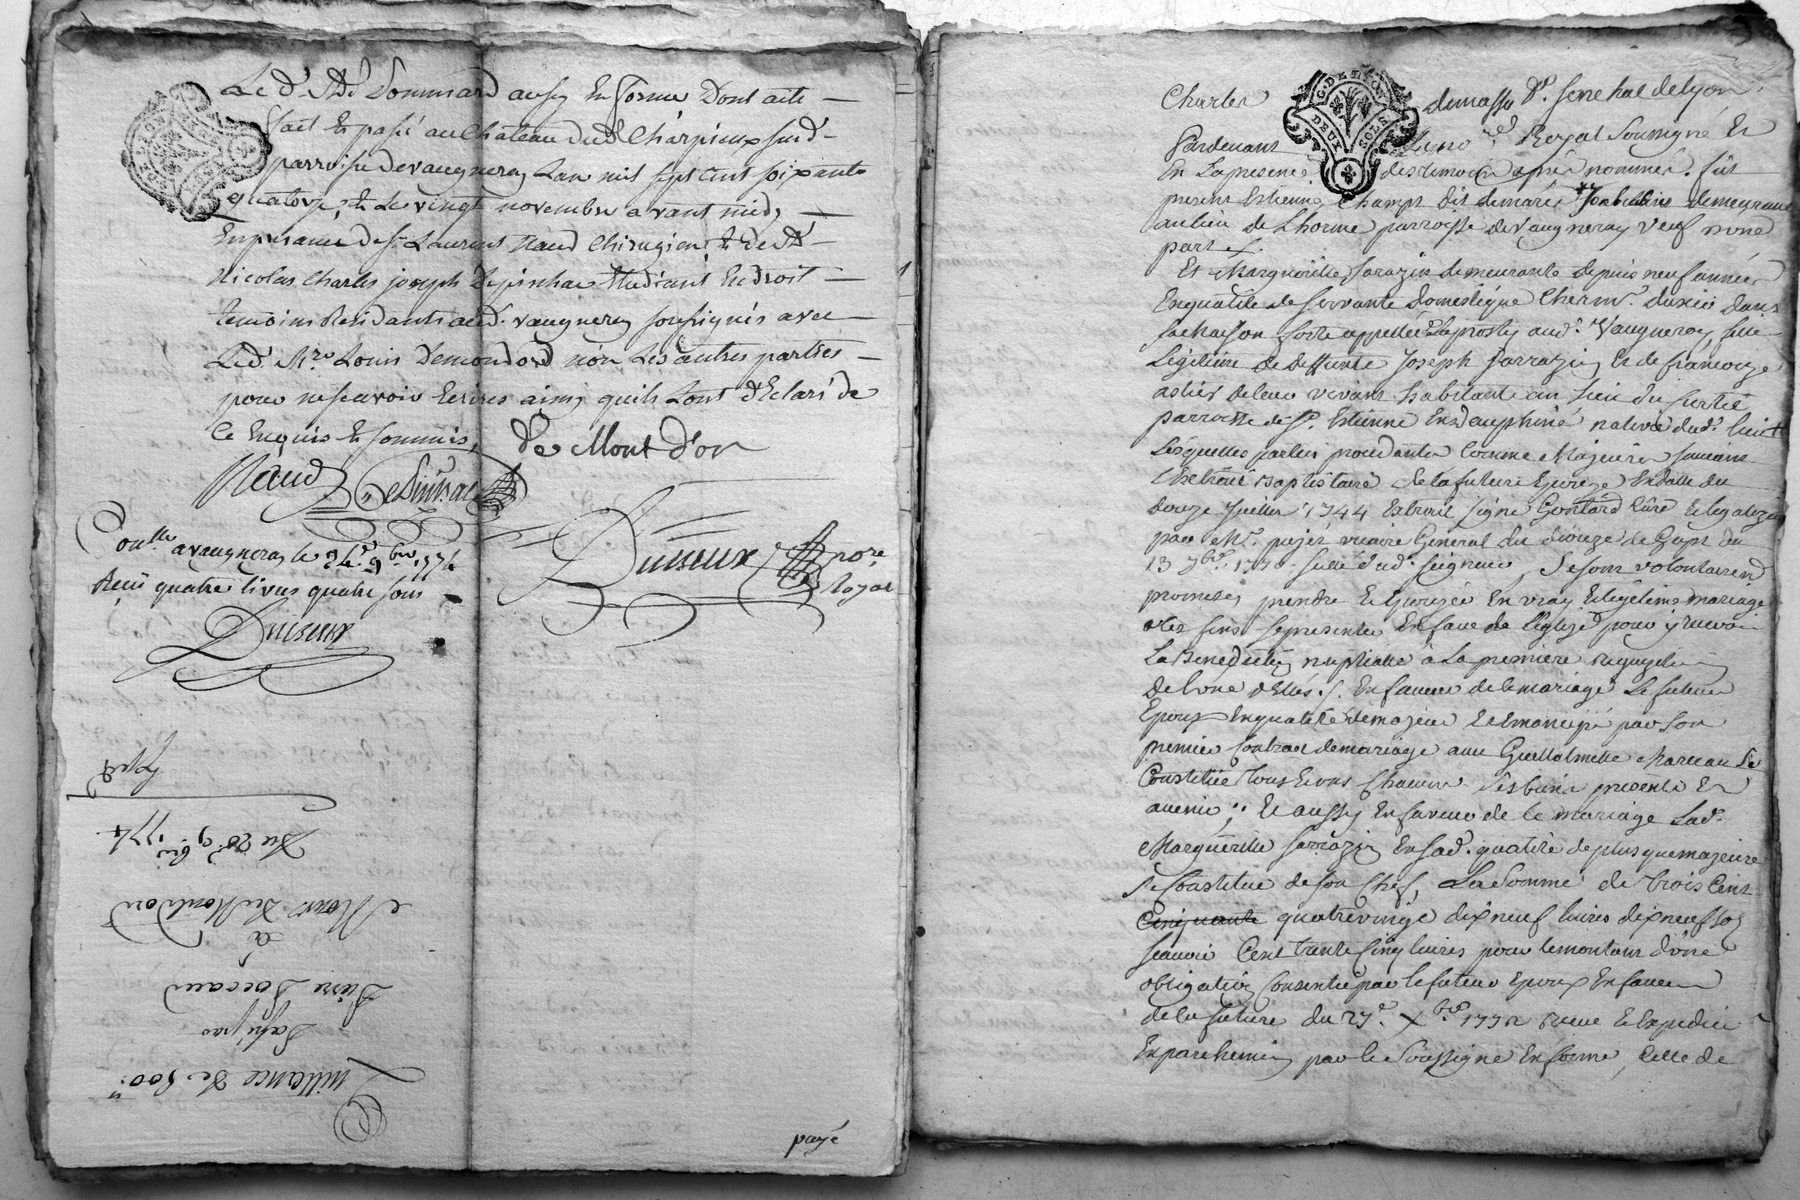 Le d. Sr Dommard aussy En forme Dont acte
fait Et passé au Château dud. Charpieux sud.
parroisse de vaugneray Lan mil sept cent soixante
quatorze, Et Le vingt novembre avant midy
En presence de Sr Laurent Naud Chirugien Et de Sr
Nicolas Charles joseph Despinhac Etudiant En droit
temoins Residants aud. vaugneray soussignés avec
Led. Mre Louis Demondord non Les autres parties
pour ne scavoir Ecrire ainsy quils Lont d'Eclaré de
Ce Enquis Et sommés,
De Mont d'or
Naud
Duiseux
no.re
Royal
Con.lle a vaugneray le 24.e 9bre 1774
Reçu quatre livres quatre sous
Duiseux
Quittance De 800.#
passé par
Pierre
à
Monsr. De Montdord
Du 20e 9bre 1774
Exped
payé
G. DE LYON
DEUX SOLS
Charles demasso Sr. senechal de Lyon
Pardevant Le no.re Royal Soussigné Et
En La presence des temoins aprés nommés. fut
present Estienne Champs dit demarés demeurant
au lieu de Lhorme parroisse de vaugneray veuf d'une
part.
Et Marguerite sarazin demeurante depuis neuf années
En qualité de servante Domestique
La Maison forte appellée aud. Vaugneray, fille
Legitime de deffunts Joseph sarrazin Et de francoize
astier de leur vivant habitants au Lieu du
parroisse de St. Estienne En dauphiné native dud. lieu
Lesquelles parties procedantes Comme Majeures suivant
L'Extrait Baptistaire de la future Epouze En datte du
douze Juillet 1744 Extrait signé Gontard Curé Et legalizé
par Mr. pujet vicaire General du diocéze de Gap du
13 7bre. 177 de volontairement
promises prendre Et Epouzer En vray Et legitime mariage
a Ces fins se presenter En face de L'eglize pour y recevoir
La Benediction nuptialle à La premiere Requizition
de L'une d'Elles. En faveur de Ce mariage Le futeur
Epoux En qualité de majeur Et Emancipé par son
premier Contrat de mariage avec Guillalmette Mareau se
Constitüe tous Et uns Chacuns ses biens presents Et
avenir; Et aussy En faveur de Ce mariage Lad.
Marguerite sarrazin En sad. qualité de plus que majeure
se Constitue de son Chef, La Somme de trois Cent
Cinquante quatrevingt dix neuf livres dix neuf sols
scavoir Cent trente Cinq livres pour le montant d'une
obligation Consentie par le futeur Epoux En faveur
de la future du 27e. Xbre 1772 Recue Et Expediée
En parchemin par le Soussigné En forme, Celle de